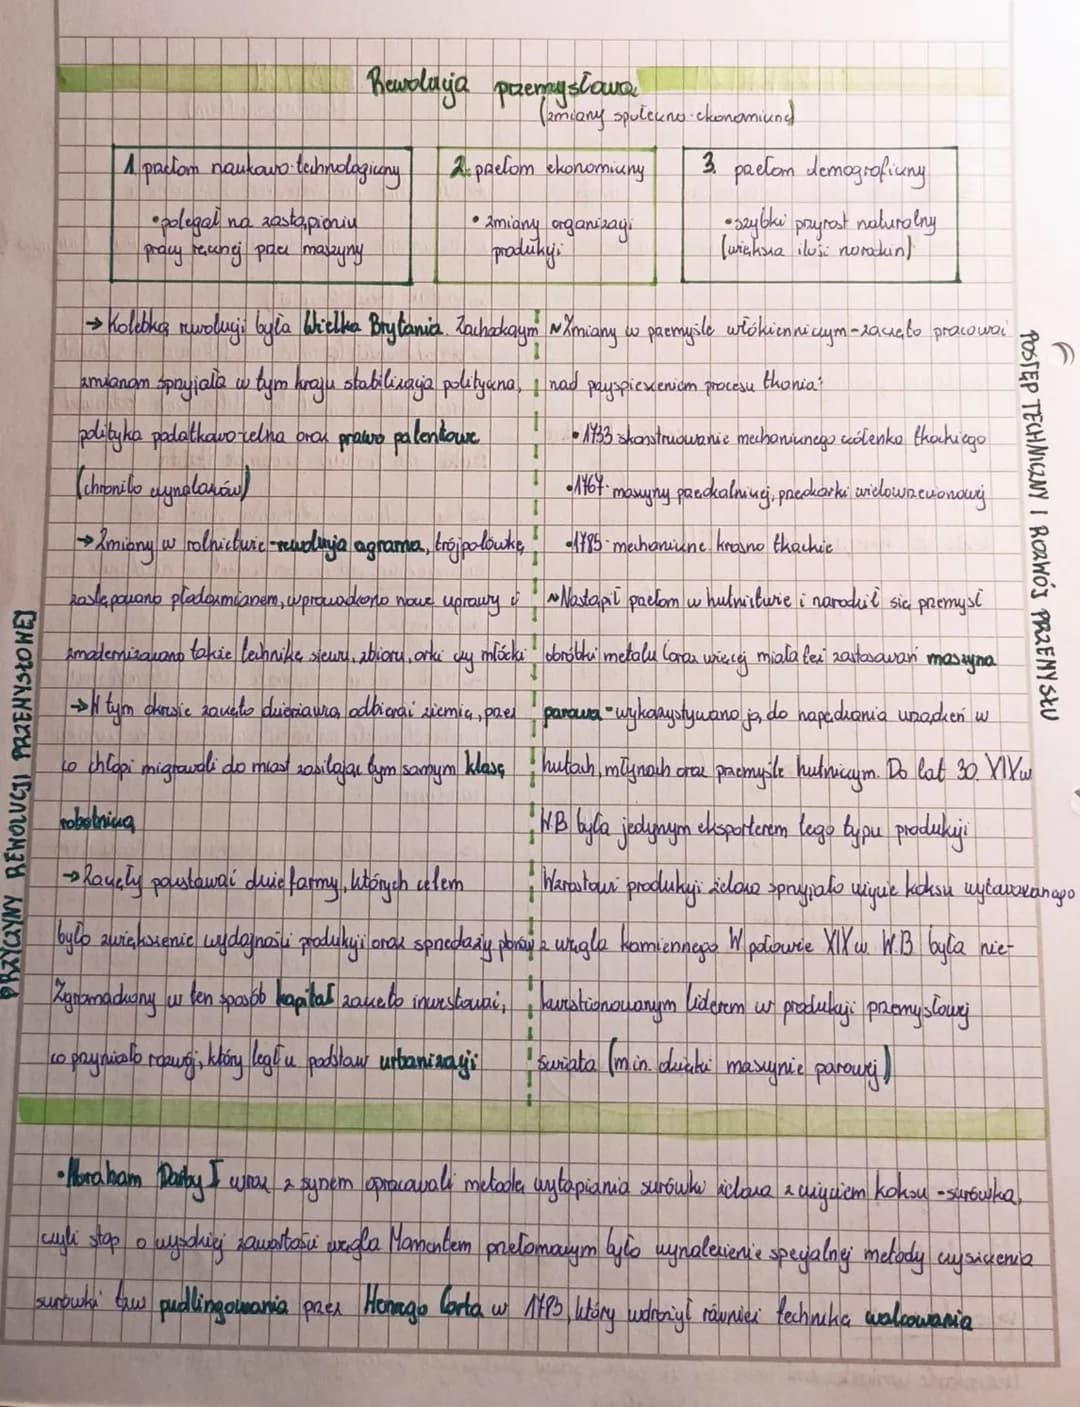 Rewolucja przemysłowa
(zmiany społeczno-ekonomiczne)
1. przełom naukowo-technologiczny
•polegał na zastąpieniu
pracy ręcznej przez maszyny
2. przełom ekonomiczny
•zmiany organizacji
produkcji
3. przełom demograficzny
•szybki przyrost naturalny
(większa ilość narodzin)
PRZYCZYNY REWOLUCJI PRZEMYSŁOWEJ
→Kolebką rewolucji była Wielka Brytania. Zachodzącym
zmianom sprzyjała w tym kraju stabilizacja polityczna,
polityka podatkowo-celna oraz prawo patentowe
(chroniło wynalazców)
→Zmiany w rolnictwie-rewolucja agrarna, trójpolówkę
zastępowano płodozmianem, wprowadzono nowe uprawy i
zmodernizowano także technikę siewu, zbioru, orki czy młócki
→W tym okresie zaczęto dzierżawcą odbierać ziemię, przez
co chłopi migrowali do miast zasilając tym samym klasę
robotniczą
→Zaczęły powstawać duże farmy, których celem
było zwiększenie wydajności produkcji oraz sprzedaży plonów
Zgromadzony w ten sposób kapitał zaczęto inwestować,
co przyniosło rozwój, który legł u podstaw urbanizacji
POSTĘP TECHNICZNY I ROZWÓJ PRZEMYSŁU
~Zmiany w przemyśle włókienniczym-zaczęto pracować
nad przyspieszeniem procesu tkania:
•1733 skonstruowanie mechanicznego czółenka tkackiego
•1767- maszyny przędzalniczej, przędzarki wielowrzecionowej
•1785- mechaniczne krosno tkackie
~Nastąpił przełom w hutnictwie i narodził się przemysł
obróbki metalu Coraz więcej miała też zastosowań maszyna
parowa-wykorzystywano ją do napędzania urządzeń w
hutach, młynach oraz przemyśle hutniczym. Do lat 30. XIXw
W.B była jedynym eksporterem tego typu produkcji
Wzrostowi produkcji żelaza sprzyjało użycie koksu wytwarzanego
z węgla kamiennego W połowie XIXw. W.B była nie-
kwestionowanym liderem w produkcji przemysłowej
świata (m.in. dzięki maszynie parowej)
•Abraham Darby I wraz z synem opracowali metodę wytapiania surówki żelaza z użyciem koksu -surówka,
czyli stop o wysokiej zawartości węgla Momentem przełomowym było wynalezienie specjalnej metody czyszczenia
surówki tzw pudlingowania przez Henrego Corta w 1783, który wdrożył również technikę walcowania